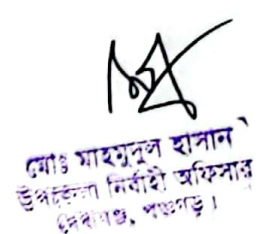 মোঃ মাহমুদুল হাসান
উপজেলা নির্বাহী অফিসার
দেবীগঞ্জ, পঞ্চগড়।